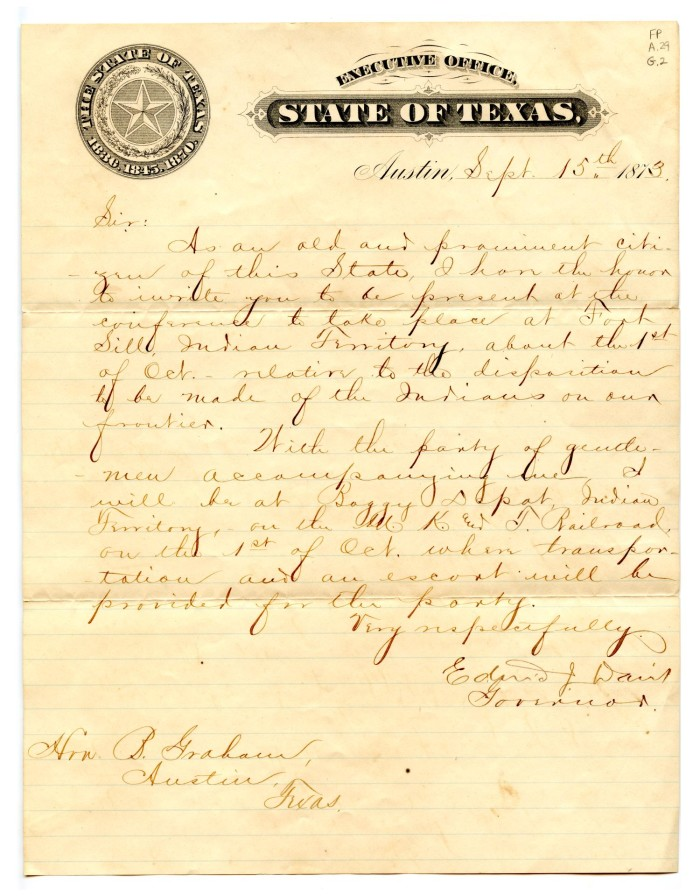 FP
A.29
G.2
THE STATE OF TEXAS
1836. 1845. 1870.
EXECUTIVE OFFICE,
STATE OF TEXAS,
Austin, Sept. 15th 1873.
Sir:
As an old and prominent citi-
-zen of this State, I have the honor
to invite you to be present at the
conference to take place at Fort
Sill, Indian Territory, about the 1st
of Oct. - relative to the disposition
to be made of the Indians on our
frontier.
With the party of gentle-
-men accompanying me, I
will be at Boggy Depot, Indian
Territory, - on the M K and T. Railroad,
on the 1st of Oct. where transpor-
-tation and an escort will be
provided for the party.
Very respectfully
Edmd J Davis
Governor.
Hon. B. Graham,
Austin,
Texas.